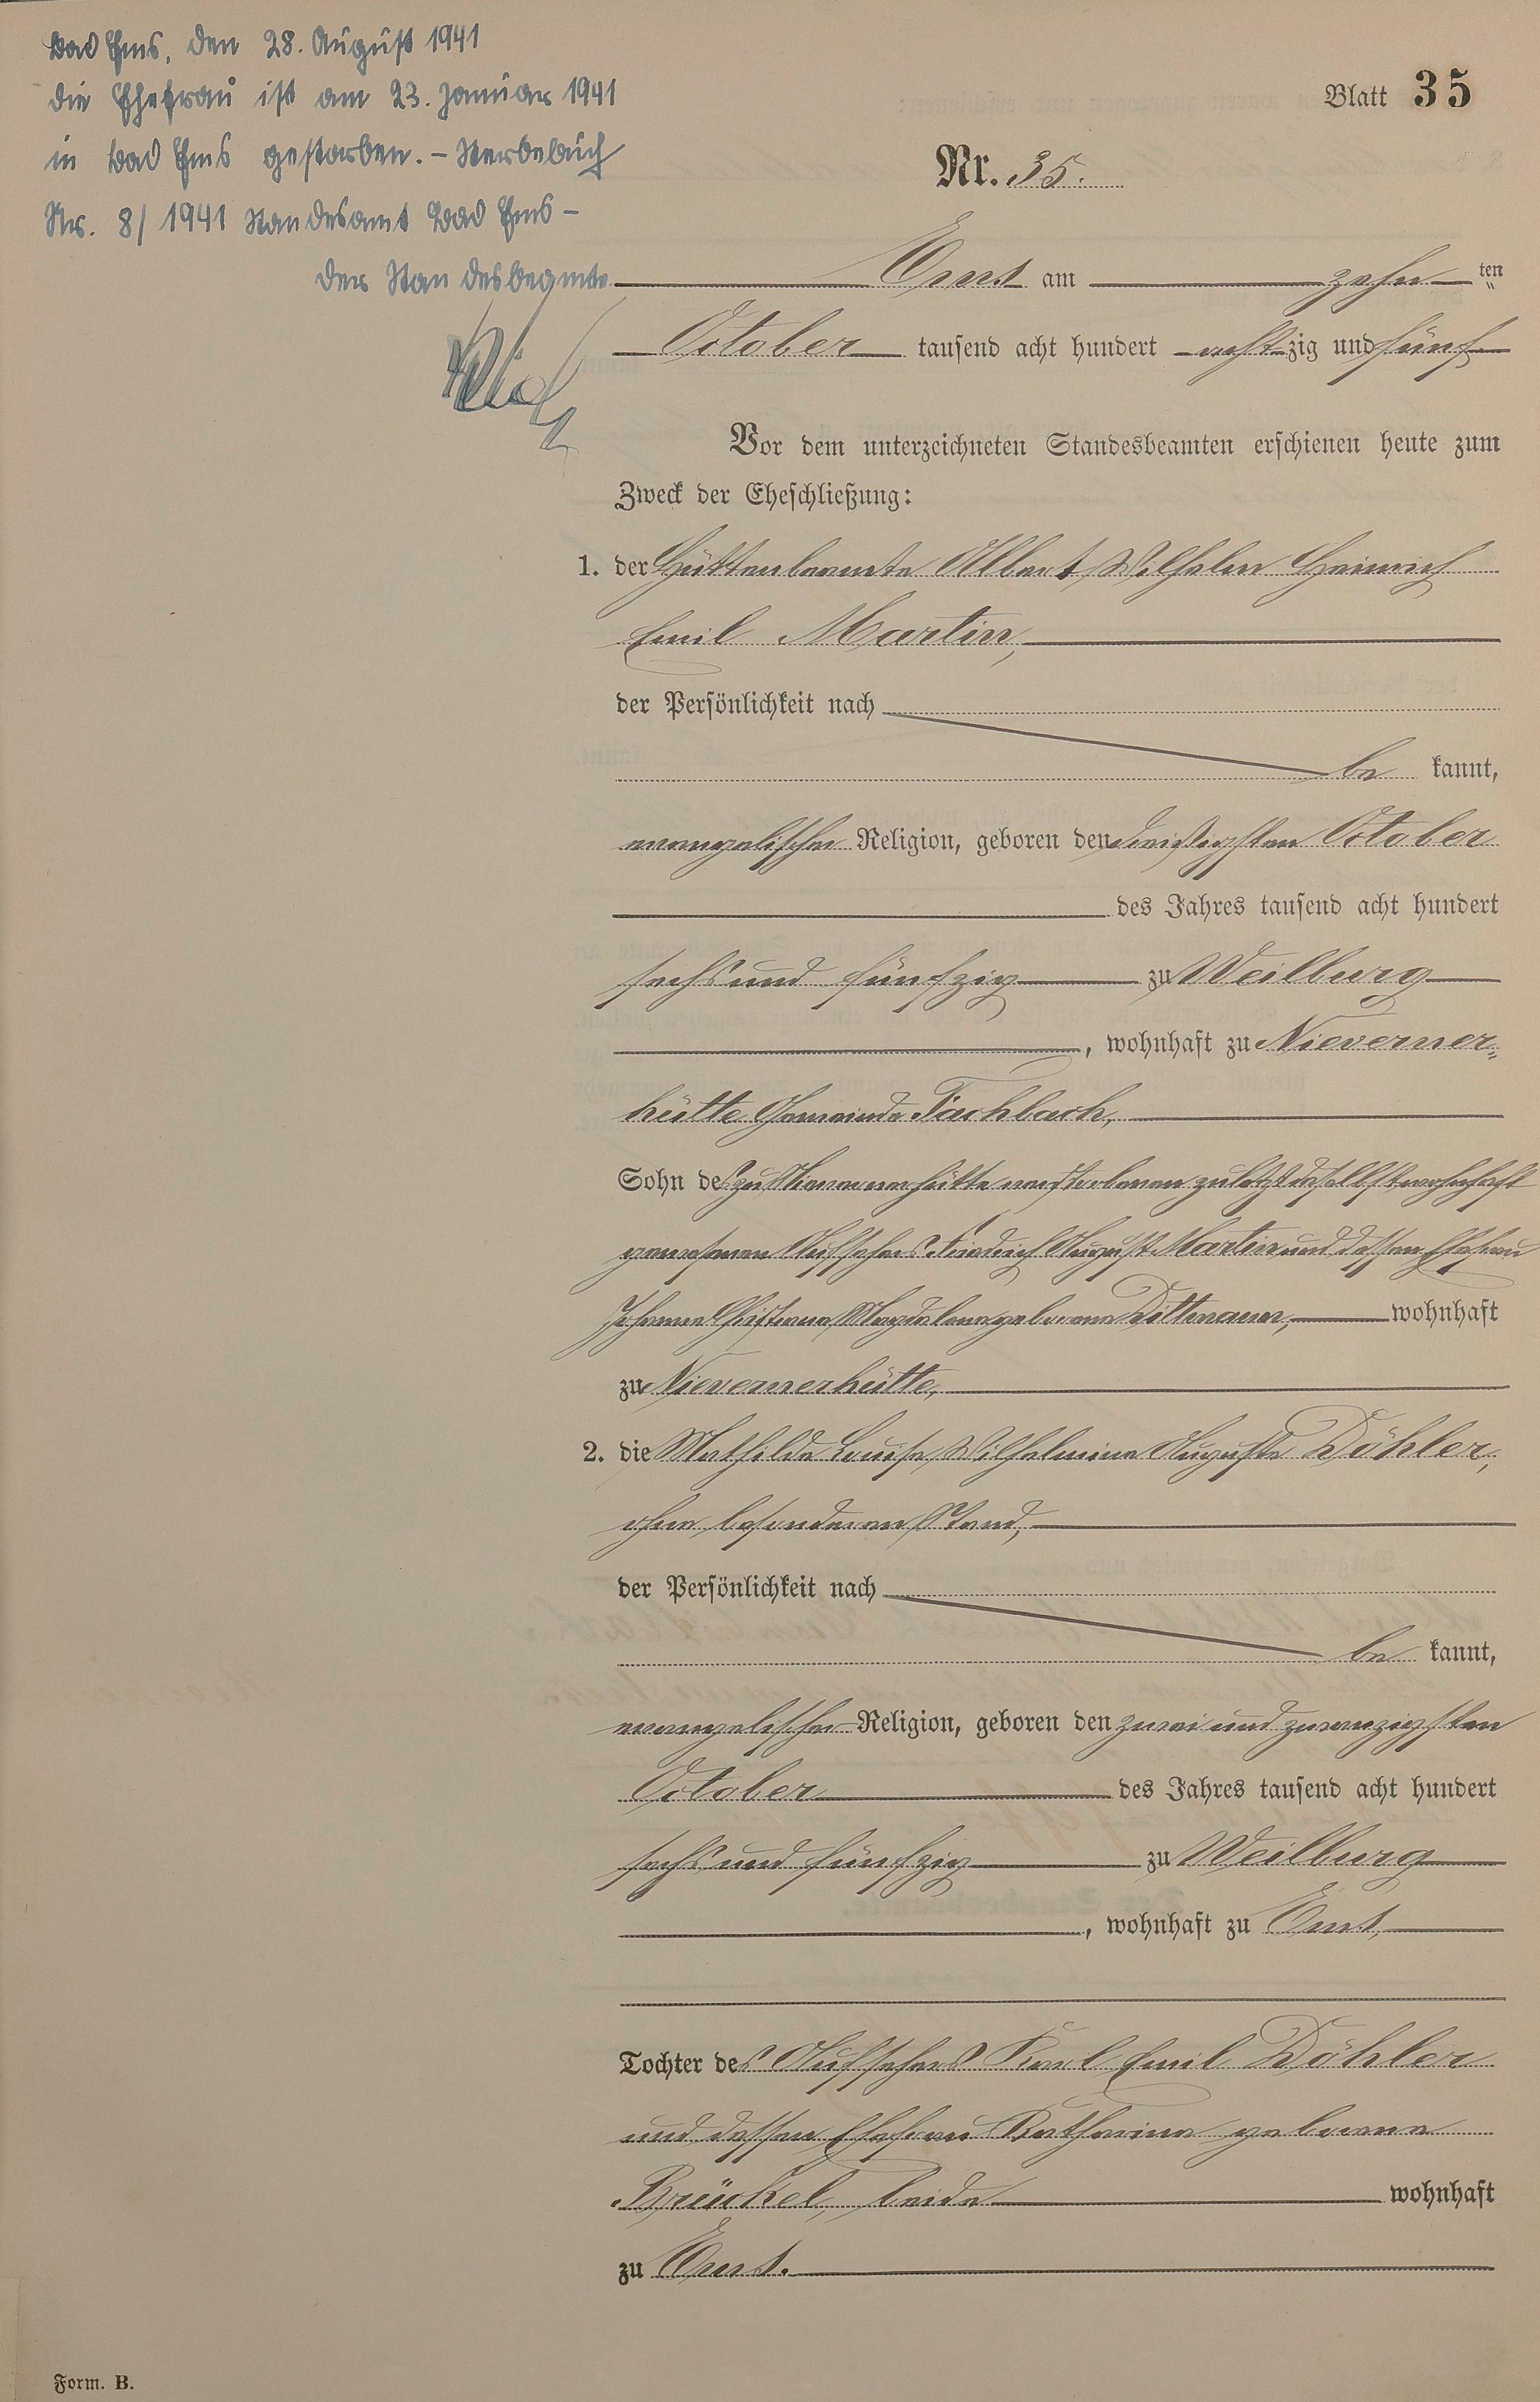 Bad Ems, den 28. August 1941
Die Ehefrau ist am 23. Januar 1941
in Bad Ems gestorben. – Sterbebuch
Nr. 8/1941 Standesamt Bad Ems –
Der Standesbeamte
Blatt 35
Nr. 35.
Ems am zehn ten
October tausend acht hundert acht zig und fünf
Vor dem unterzeichneten Standesbeamten erschienen heute zum
Zweck der Eheschließung:
1. der Hüttenbeamte Albert Wilhelm Heinrich
Emil Martin,
der Persönlichkeit nach
be kannt,
evangelischer Religion, geboren den dreißigsten October
des Jahres tausend acht hundert
sechs und fünfzig zu Weilburg
, wohnhaft zu Nieverner=
hütte Gemeinde Fachbach,
Sohn des zu Nievernerhütte verstorbenen zuletzt daselbst wohnhaft
gewesenen Aufsehers Friedrich August Martin und dessen Ehefrau
Johanna Christiana Magdalena geborene Dittmann, wohnhaft
zu Nievernerhütte,
2. die Mathilde Louise Wilhelmine Auguste Döhler,
ohne besonderen Stand,
der Persönlichkeit nach
be kannt,
evangelischer Religion, geboren den zwei und zwanzigsten
October des Jahres tausend acht hundert
sechs und fünfzig zu Weilburg
, wohnhaft zu Ems,
Tochter des Aufsehers Karl Emil Döhler
und dessen Ehefrau Katharina geborene
Brückel, beide wohnhaft
zu Ems.
Form. B.